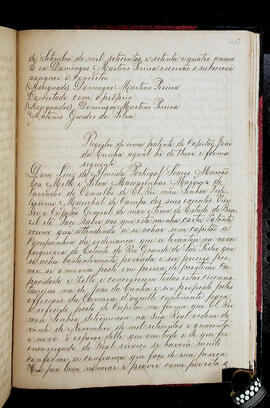 de Setembro de mil setecentos e setenta e quatro annos
E eu Domingos Martins Pereira escrivão o subscrevo
assignei o concerto
(Assignado) Domingos Martins Pereira
Concertado com o proprio
(Assignados) Domingos Martins Pereira
Antonio Guedes da Silva
Registro de uma patente de Capitão João
da Cunha aqual he do theor e forma
seguinte
Dom Luiz de Almeida Portugal Soares
Mello e Silva Mascarenhas Marquez do
Lavradio do Conselho de El Rei meu Senhor
Marechal de Campo dos seus exercitos Vice
Rei e Capitão General de mar e terra do Estado do Bra
zil etc Faço saber aos que esta minha carta Patente
virem que attendendo a se achar sem capitão a
Companhia da ordenança que se levantou na nova
freguezia do Districto do Rio Grande de San Pedro que
se acha bastantemente povoada e ser preciso
no se o mesmo posto em pessoa de prestimo Ca
pacidade e zello e concorrerem todas estas circuns
tancias na de João da Cunha e ser proposto pelos
officiaes da Camara d'aquelle continente para
o referido posto de Capitão na forma que El Rei
meu Senhor determina na sua Real ordem de
vinte de Novembro de mil setecentos e quarenta
e nove E esperar delle que em tudo o de que for
encarregado do Real serviço se haverá muito
conforme a confiança que faço da sua pessoa
Hei por bem nomear e prover como por esta o